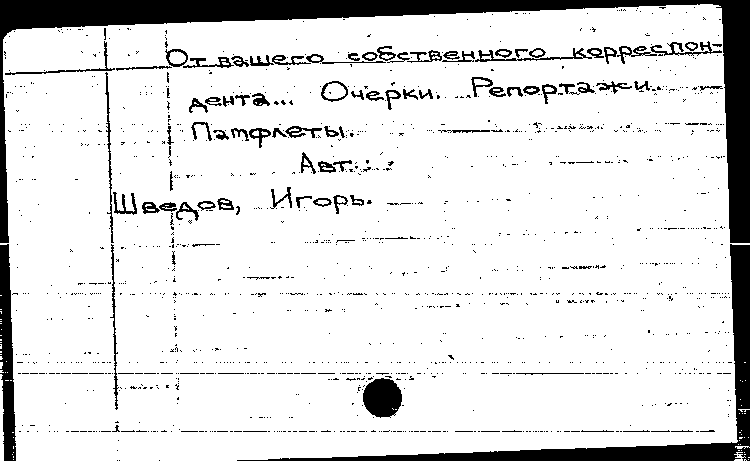 От вашего собственного корреспон-
дента... Очерки. Репортажи.
Памфлеты.
Авт.:
Шведов, Игорь.